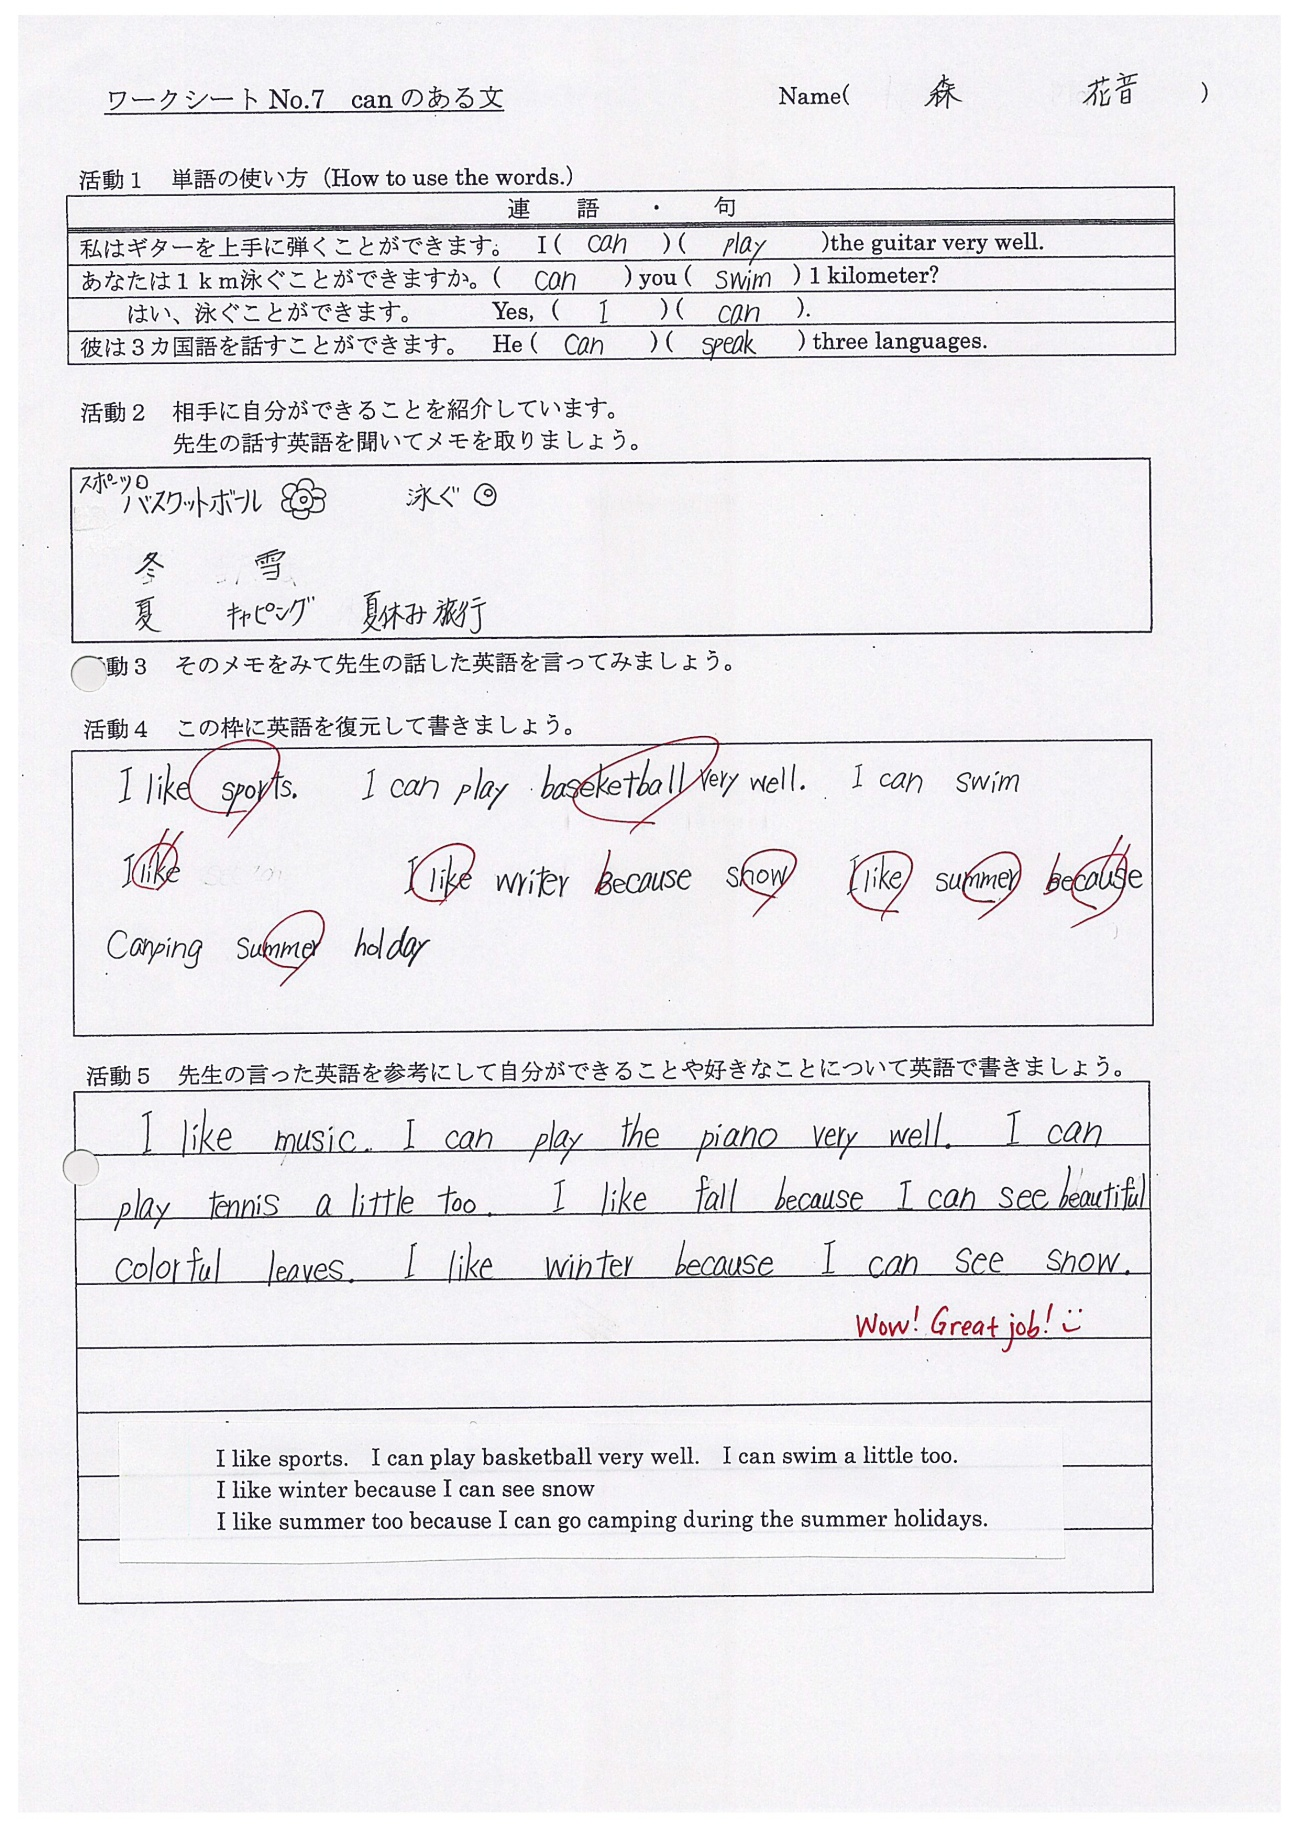 ワークシート No.7　can のある文　Name(　森　花音　)
活動１　単語の使い方（How to use the words.）
連　語　・　句
私はギターを上手に弾くことができます。　I (　can　)(　play　)the guitar very well.
あなたは１ｋｍ泳ぐことができますか。(　can　) you (　swim　) 1 kilometer?
はい、泳ぐことができます。　Yes, (　I　)(　can　).
彼は３カ国語を話すことができます。　He (　can　)(　speak　) three languages.
活動２　相手に自分ができることを紹介しています。
先生の話す英語を聞いてメモを取りましょう。
スポーツ○
バスケットボール　泳ぐ ◎
冬　雪
夏　キャピング　夏休み 旅行
動３　そのメモをみて先生の話した英語を言ってみましょう。
活動４　この枠に英語を復元して書きましょう。
I like sports.　I can play baseketball very well.　I can swim
I like　I like writer because show　I like summer because
Canping summer holday
活動５　先生の言った英語を参考にして自分ができることや好きなことについて英語で書きましょう。
I like music. I can play the piano very well. I can
play tennis a little too. I like fall because I can see beautiful
colorful leaves. I like winter because I can see snow.
Wow! Great job!
I like sports.　I can play basketball very well.　I can swim a little too.
I like winter because I can see snow
I like summer too because I can go camping during the summer holidays.